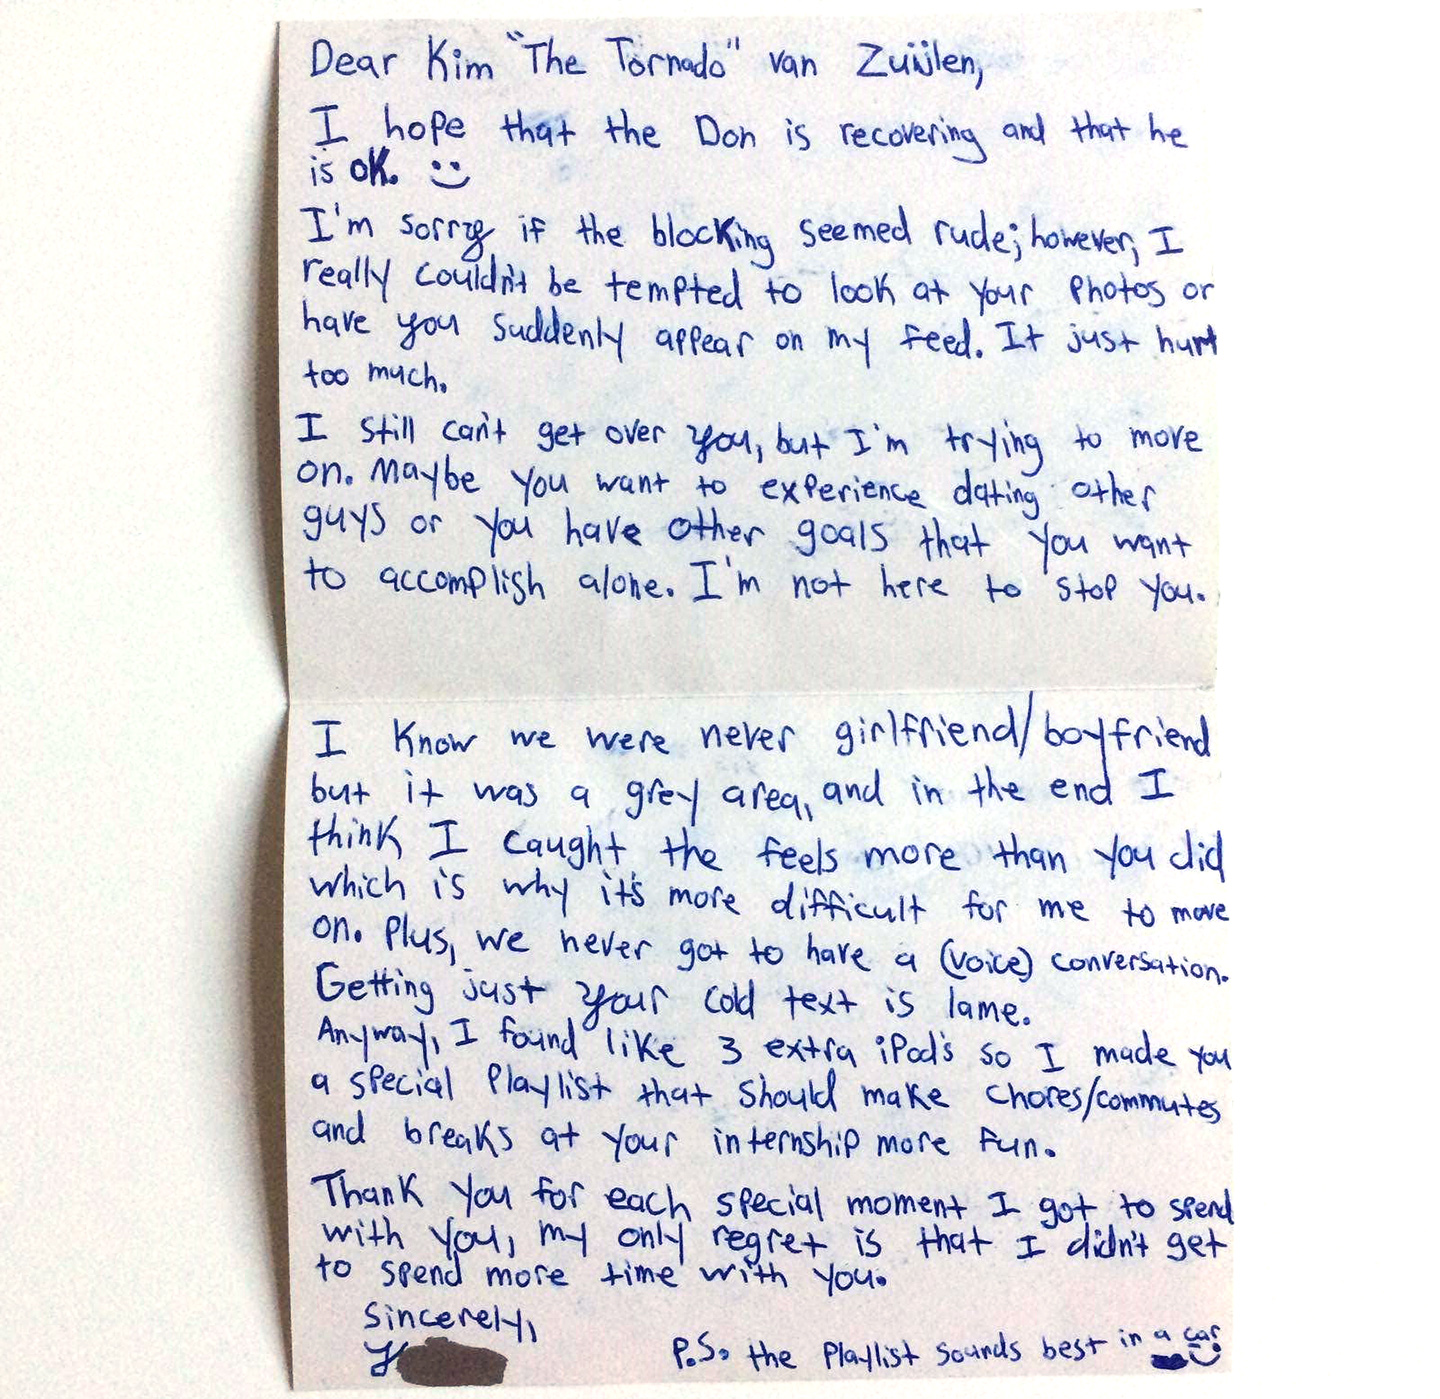 Dear Kim "The Tornado" van Zuijlen,
I hope that the Don is recovering and that he
is OK. :)
I'm sorry if the blocking seemed rude; however, I
really couldn't be tempted to look at your photos or
have you suddenly appear on my feed. It just hurt
too much.
I still can't get over you, but I'm trying to move
on. Maybe you want to experience dating other
guys or you have other goals that you want
to accomplish alone. I'm not here to stop you.
I know we were never girlfriend/boyfriend
but it was a grey area, and in the end I
think I caught the feels more than you did
which is why it's more difficult for me to move
on. Plus, we never got to have a (voice) conversation.
Getting just your cold text is lame.
Anyway, I found like 3 extra iPod's so I made you
a special playlist that should make chores/commutes
and breaks at your internship more fun.
Thank you for each special moment I got to spend
with you, my only regret is that I didn't get
to spend more time with you.
Sincerely,
P.S. the playlist sounds best in a car :)